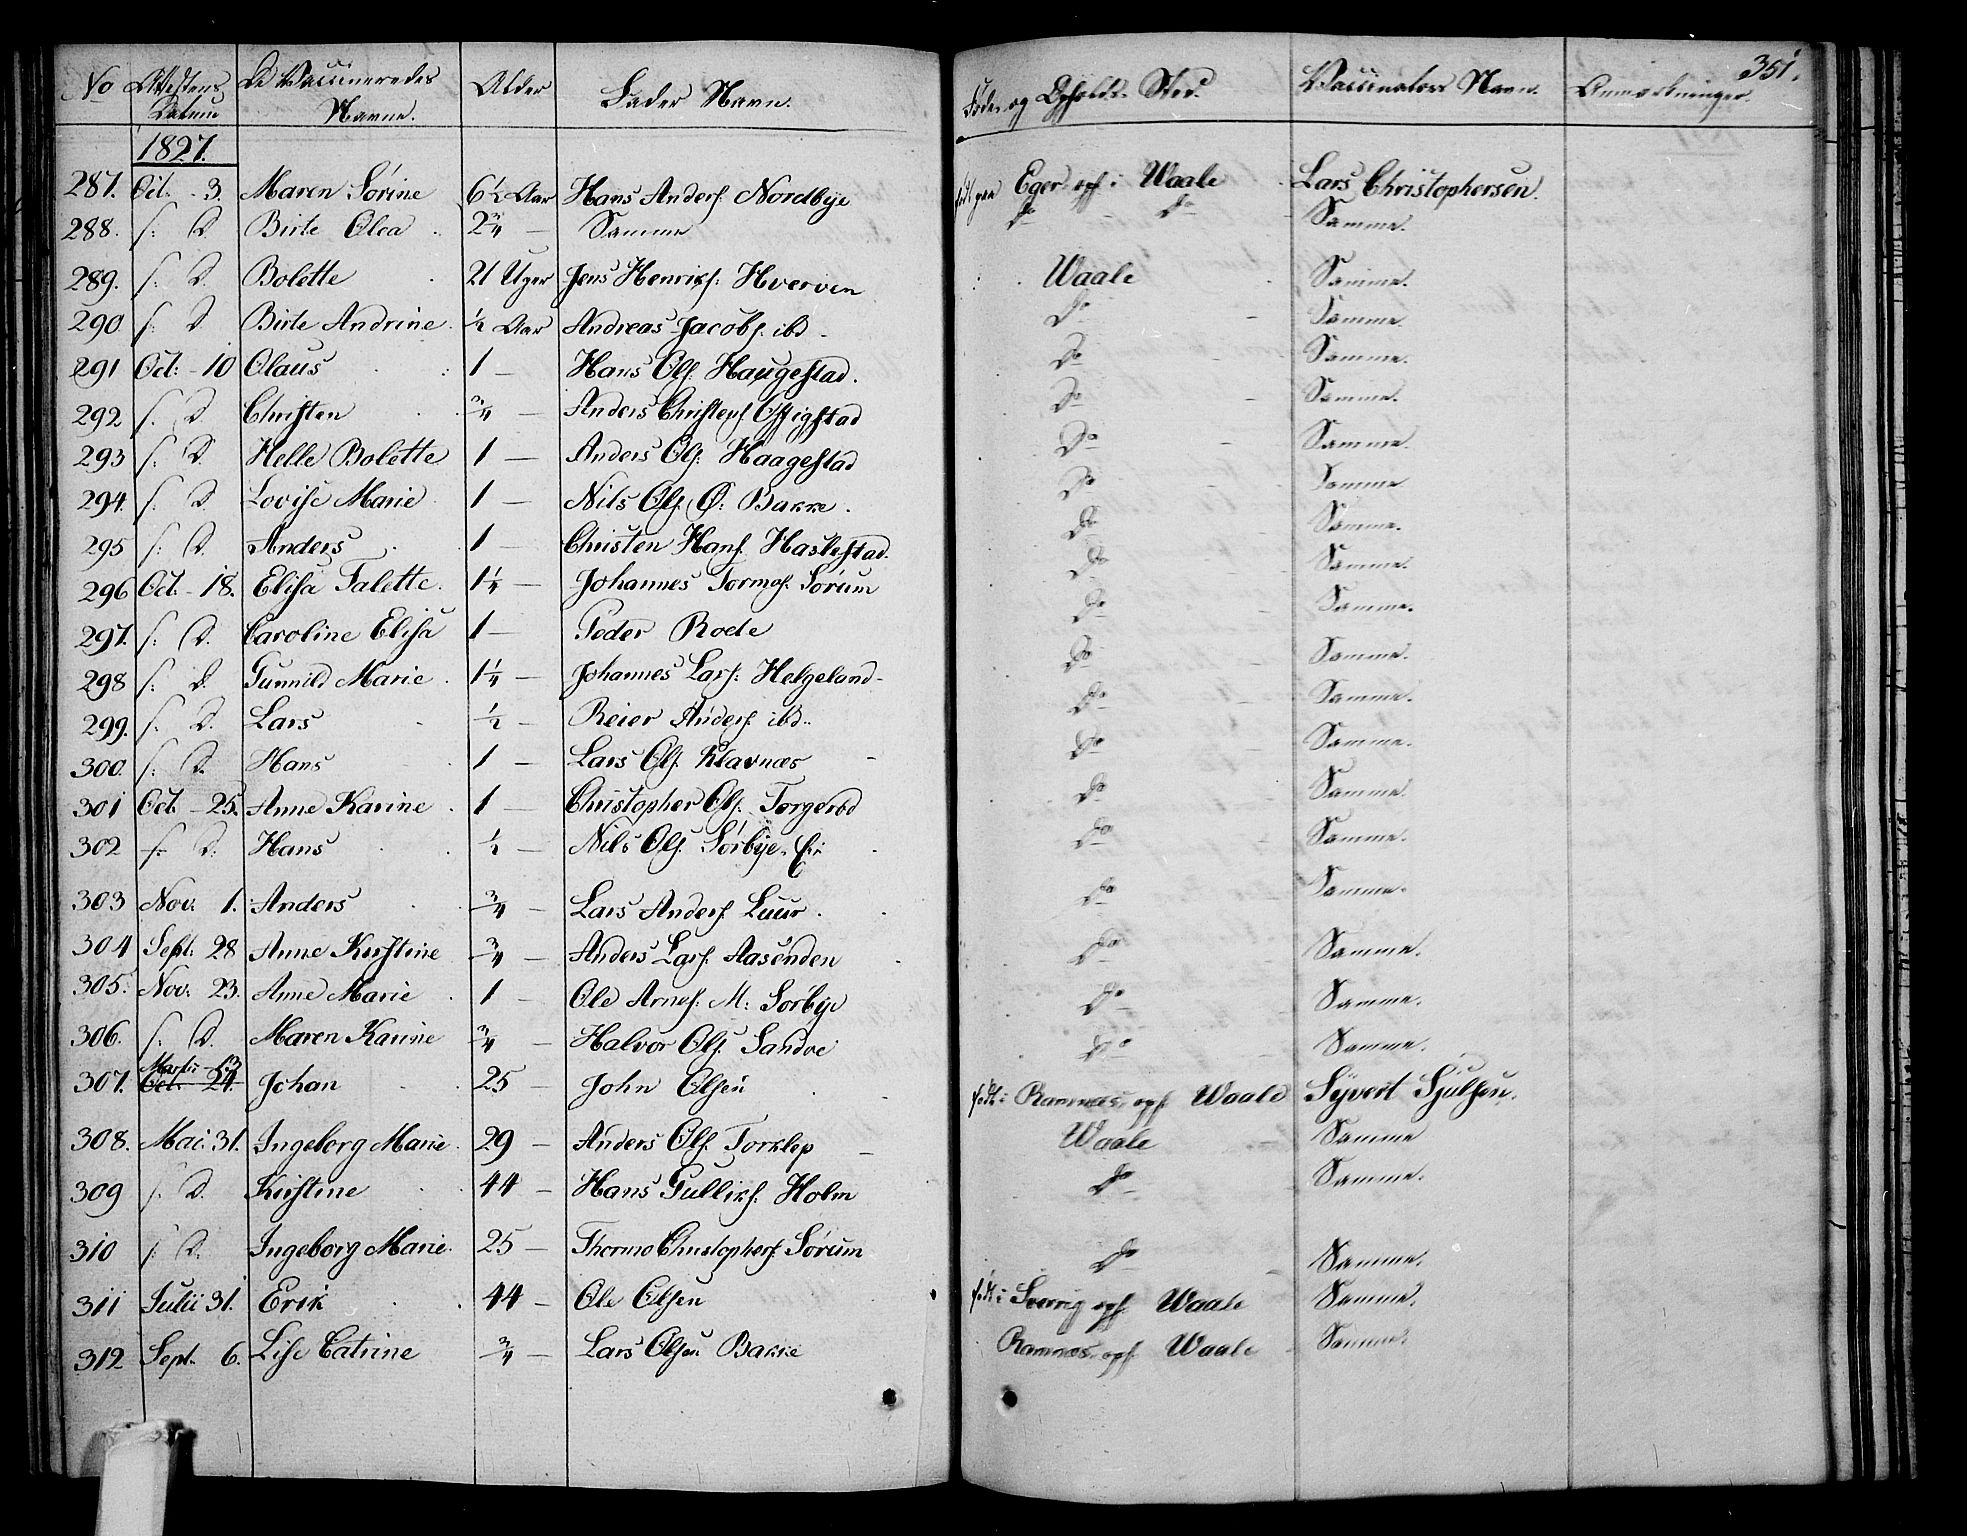 351.
No Attestens Datum De Vaccineredes Navne. Alder Fader Navn. Føde- og Opholds-Sted. Vaccinators Navn. Anmærkninger.
1827.
287. Oct. - 3. Maren Sørine 6½ Aar Hans Anders. Nordbye født paa Eger opf. i Waale Lars Christophersen.
288. s. D. Birte Olea 2¾ — Samme do do Samme.
289. s. D. Bolette 21 Uger Jens Henriks. Hverven Waale Samme.
290 s. D Birte Andrine ½ Aar Andreas Jacobs. ibd. Do Samme.
291 Oct. - 10 Olaus 1 — Hans Ols. Haugestad. Do Samme.
292 s. D. Christen ¾ — Anders Christens. Do Samme.
293 s. D. Helle Bolette 1 — Anders Ols. Haagestad Do Samme.
294. s. D. Lovise Marie 1 — Nils Ols. Ø. Bakke. Do Samme.
295 s. D. Anders 1 — Christen Hans. Haslestad. Do Samme.
296 Oct. - 18. Elisa Talette. 1¼ — Johannes Tormos. Sørum Do Samme.
297. s. D. Caroline Elisa 1 — Peder Roede Do Samme.
298 s. D. Gunnild Marie 1¼ — Johannes Lars. Helgeland Do Samme.
299. s. D. Lars ½ — Reier Anders. ibd. Do Samme.
300. s. D. Hans 1 — Lars Ols. Klavnæs Do Samme.
301 Oct. - 25. Anne Karine 1 — Christopher Ols. Torgerød Do Samme.
302 s. D. Hans ½ — Nils Ols. Sørbye Do Samme.
303 Nov. 1. Anders ¾ — Lars Anders. Luur. Do Samme.
304 Sept. 28 Anne Kirstine ¾ — Anders Lars. Aasenden Do Samme.
305. Nov. 23. Anne Marie 1 — Ole Arnes. M. Sørbye Do Samme.
306. s. D. Maren Karine ¾ — Halvor Ols. Sandve Do Samme.
Martii - 13
307. Oct. 24. Johan 25 — John Olsen født i Ramnæs, opf. Waale Syvert Sjulsen.
308. Mai. 31. Ingeborg Marie 29 — Anders Ols. Torklep Waale Samme
309 s. D. Kirstine 44 — Hans Gulliks. Holm Do Samme.
310 s. D. Ingeborg Marie. 25 — Thormo Christophers. Sørum Do Samme.
311 Julii 31. Erik 44 — Ole Olsen født i Sverrig opf. Waale Samme.
312 Sept. 6. Lise Catrine ¾ — Lars Olsen Bakke Ramnæs. opf. Waale Samme.